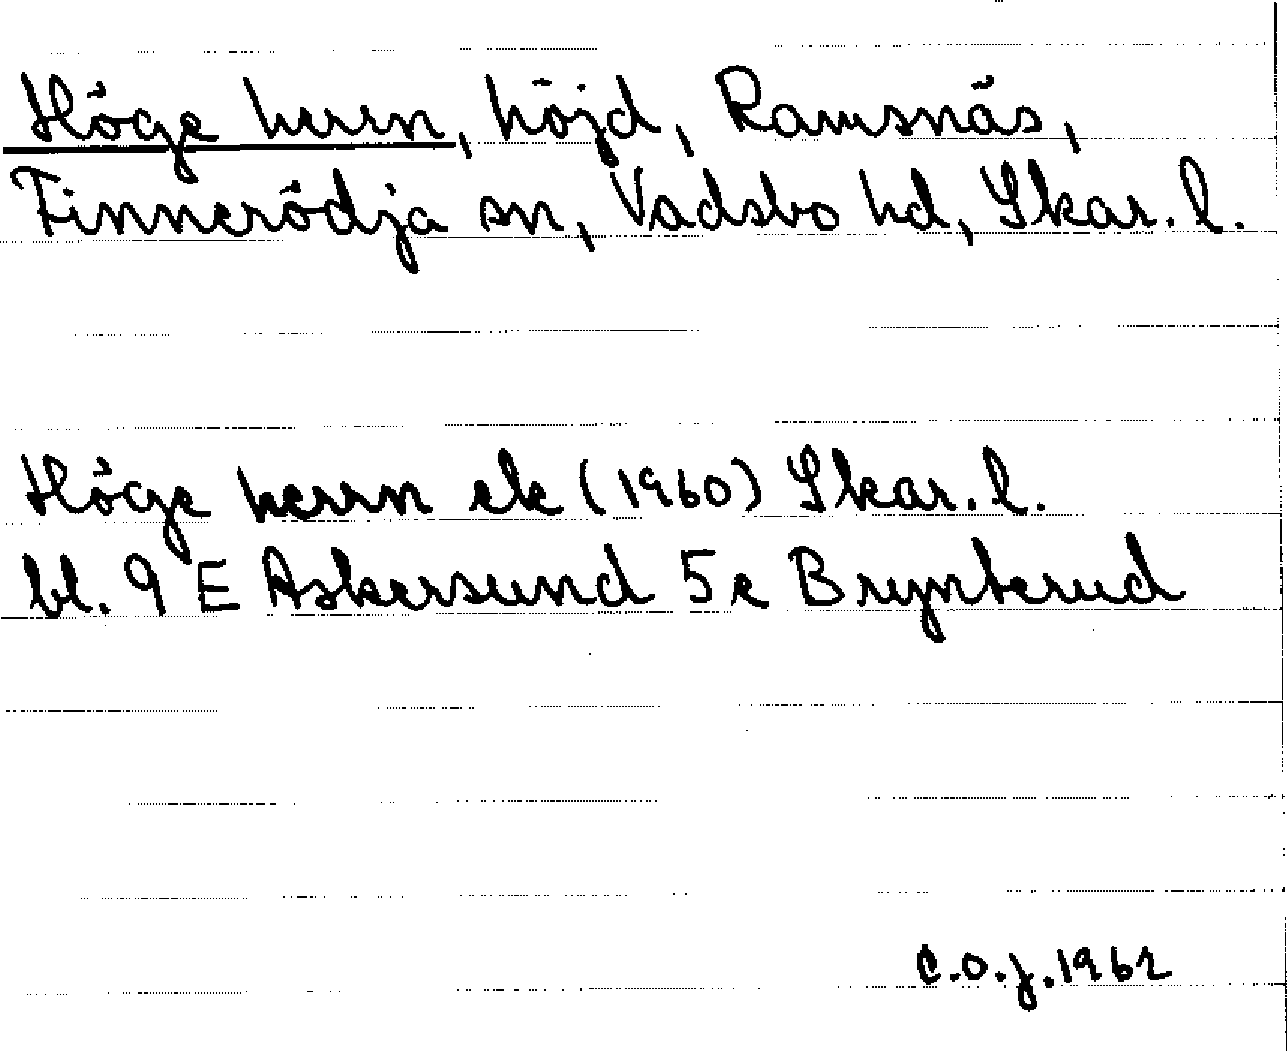 Höge herrn, höjd, Ramsnäs,
Finnerödja sn, Vadsbo hd, Skar. l.
Höge herrn ek (1960) Skar. l.
bl. 9 E Askersund 5e Brynterud
C.O.J. 1962